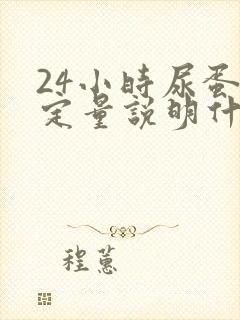 24小時尿蛋
定量説明什
程蕙